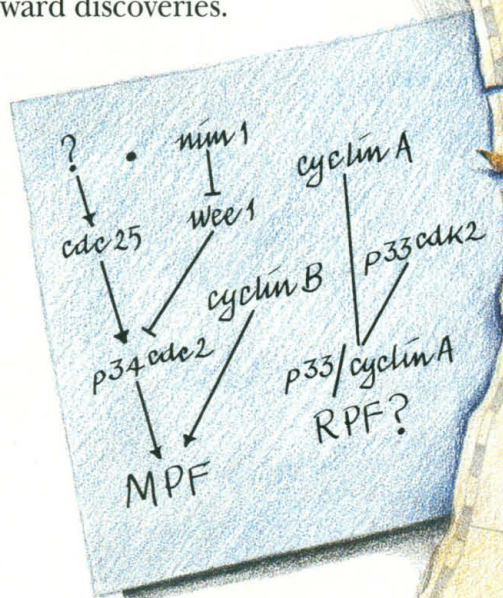 ward discoveries.
? • nim1 cyclin A
cdc25 wee1 p33cdk2
cyclin B
p34cdc2 p33/cyclin A
RPF?
MPF